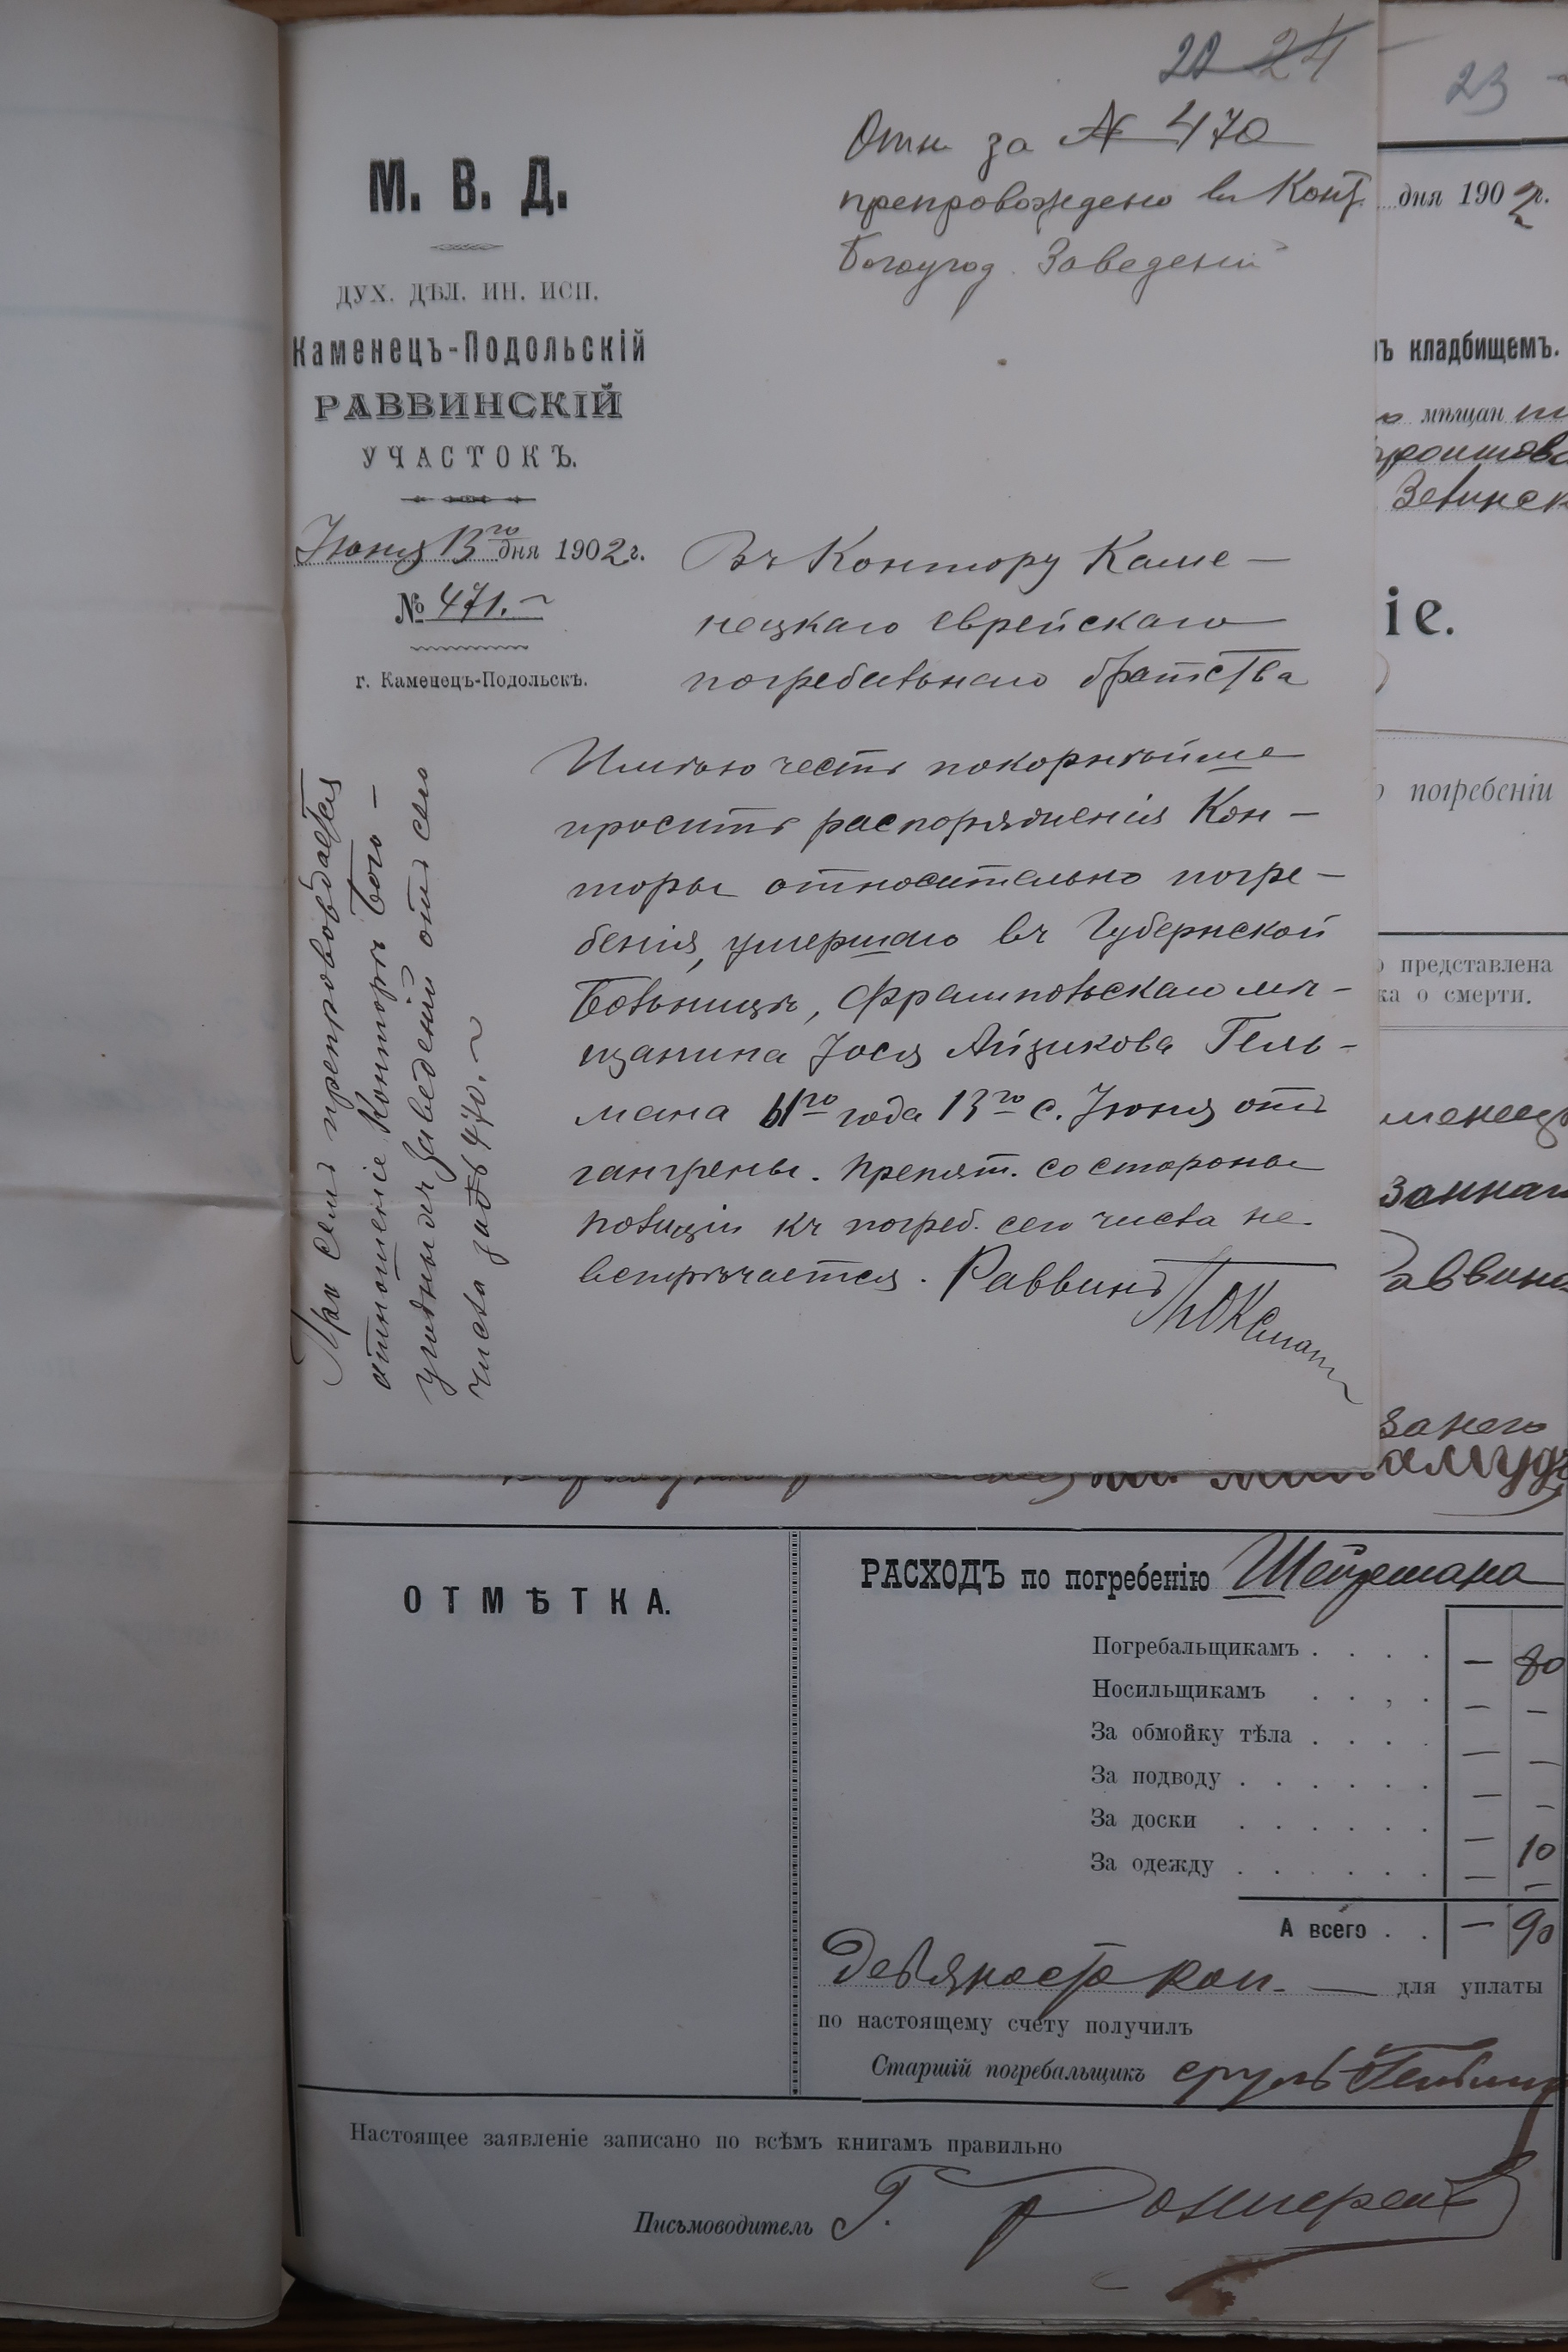 22 24
Отн за № 470
препровождено въ Конт.
Богоугод. Заведений
М. В. Д.
ДУХ. ДѢЛ. ИН. ИСП.
Каменецъ-Подольскій
РАВВИНСКІЙ
УЧАСТОКЪ.
Іюня 13го дня 1902 г.
№ 471.
г. Каменецъ-Подольскъ.
Въ Контору Каме-
нецкаго еврейскаго
погребальнаго братства
Имѣю честь покорнѣйше
просить распоряженія Кон-
торы относительно погре-
бенія, умершаго въ Губернской
Больницѣ, Фрампольскаго мѣ-
щанина Іося Айзикова Гель-
мана 61го года 13го с. Іюня отъ
гангрены. Препят. со стороны
полиціи къ погреб. сего числа не
встрѣчается. Раввинъ
При семъ препровождается
отношеніе Конторы Бого-
угодныхъ Заведеній отъ сего
числа за № 470.
23
дня 1902 г.
ъ кладбищемъ.
мѣщан
іе.
погребеніи
представлена
ка о смерти.
Раввин
ОТМѢТКА.
РАСХОДЪ по погребенію
Погребальщикамъ . . . . — 80
Носильщикамъ . . . . — —
За обмойку тѣла . . . . — —
За подводу . . . . . . — —
За доски . . . . . . — 10
За одежду . . . . . . — —
А всего . . — 90
Девяносто коп. — для уплаты
по настоящему счету получилъ
Старшій погребальщикъ
Настоящее заявленіе записано по всѣмъ книгамъ правильно
Письмоводитель Г.